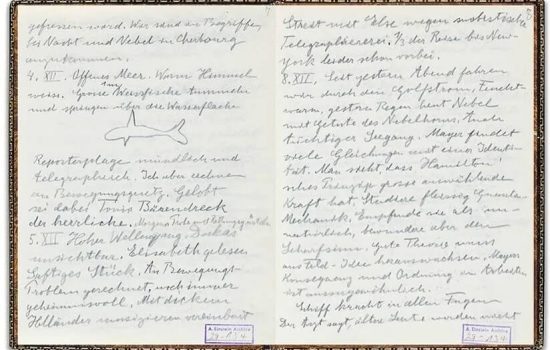 gefressen ward. War sind im Begriffen,
bei Nacht und Nebel in Cherbourg
anzukommen.
4. XII. Offenes Meer. Warm Himmel
weiss. Grosse Weissfische tummeln
und springen über die Wasserfläche
Reporterplage mündlich und
telegraphisch. Ich aber rechne
an Bewegungsgesetz. Gelobt
sei dabei Toni's Bärendreck
der herrliche.
5. XII Hoher Wellengang
unsichtbar. Elisabeth gelesen
Saftiges Stück. An Bewegungs-
Problem gerechnet, noch immer
geheimnisvoll. Mit dickem
Holländer musizieren vereinbart
Streit mit Else wegen
Telegraphiererei. 1/3 der Reise bis New-
york leider schon vorbei.
8. XII. Seit gestern Abend fahren
wir durch den Golfstrom,
warm, gestern Regen heut Nebel
mit Getute des Nebelhorns,
tüchtiger Seegang. Mayer findet
viele Gleichungen mit einer Identi-
tät. Man sieht dass Hamilton'
sches Prinzip grosse auswählende
Kraft hat. Studiere fleissig Quanten-
Mechanik. Empfinde sie als un-
natürlich, bewundere aber den
Scharfsinn. Gute Theorie muss
aus Feld-Idee herauswachsen. Mayers
und Ordnung im Arbeiten
ist aussergewöhnlich.
Schiff kracht in allen Fugen
Der Arzt sagt, ältere Leute werden nicht
A. Einstein Archive
29-134
A. Einstein Archive
29-134